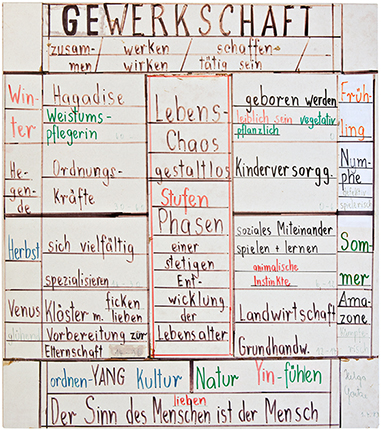 GEWERKSCHAFT
zusam- / werken / schaffen
men / wirken / tätig sein
Win-
ter
Hagadise
Weistums-
pflegerin
He-
gen-
de
Ordnungs-
Kräfte
Herbst
sich vielfältig
spezialisieren
Venus
ficken
Klöster m. lieben
Vorbereitung zür
Elternschaft
Lebens-
Chaos
gestaltlos
Stufen
Phasen
einer
stetigen
Ent-
wicklung
der
Lebensalter
geboren werden
leiblich sein vegetativ
pflanzlich
Kinderversorgg.
soziales Miteinander
spielen + lernen
animalische
Instinkte
Landwirtschaft
Grundhandw.
Früh-
ling
Num-
phe
Som-
mer
Ama-
zone
ordnen-YANG Kultur Natur Yin-fühlen
lieben
Der Sinn des Menschen ist der Mensch